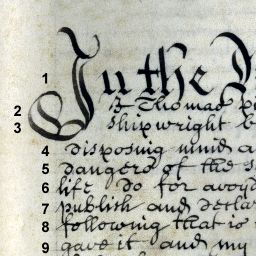 1 In the N
2 I Thomas
3 Shipwright b
4 disposing mind a
5 dangers of the s
6 life Do for avoyd
7 publish and Decla
8 following that is
9 gave it and my